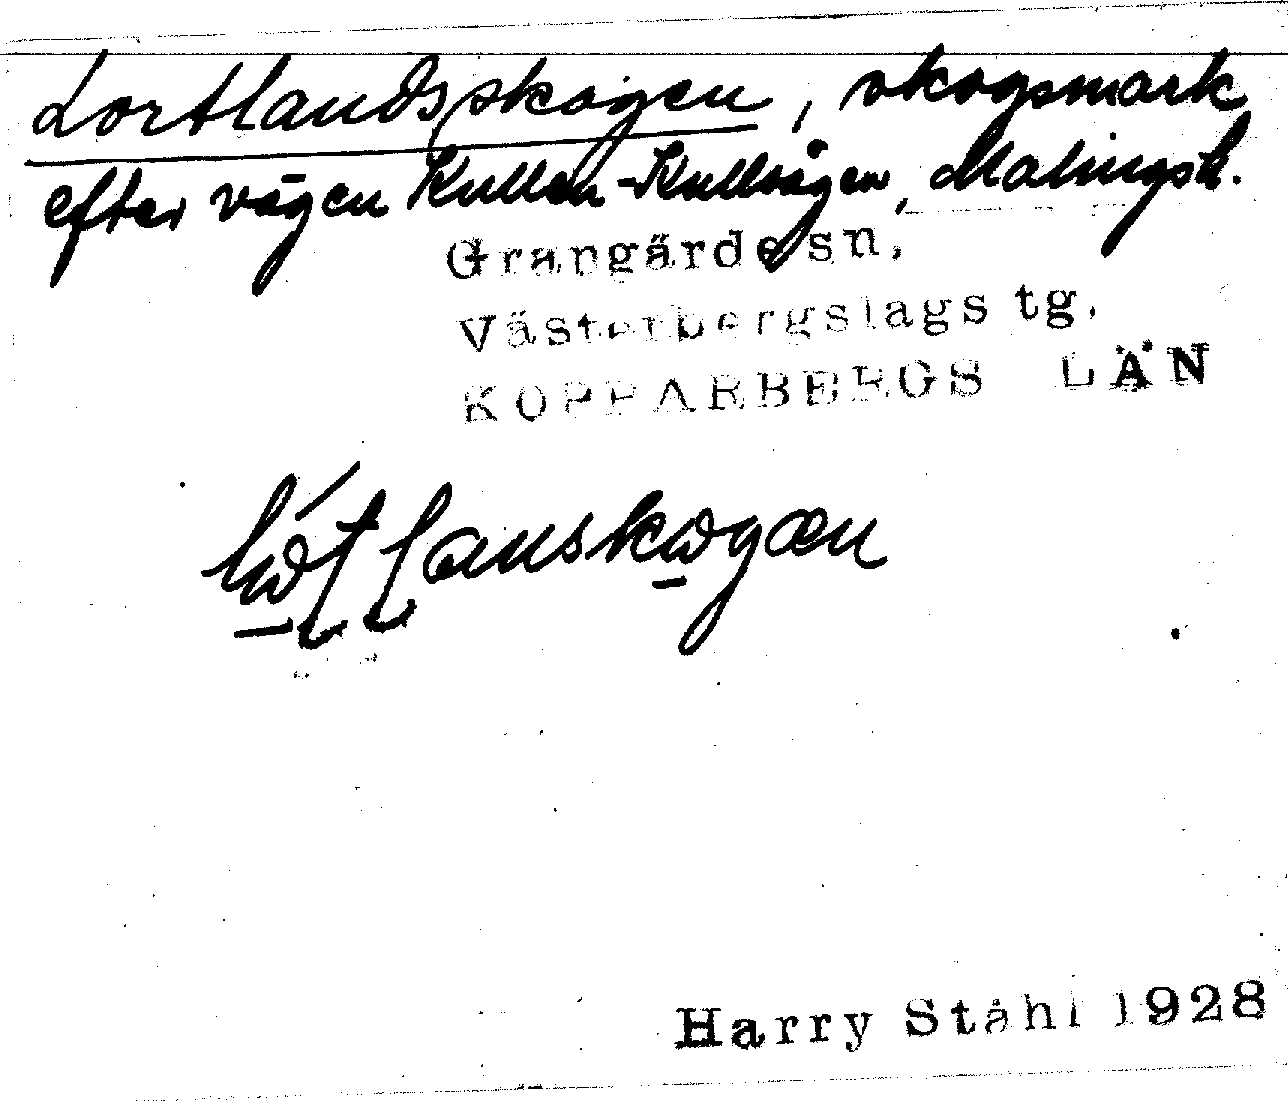 Lortlandsskogen, skogsmark
efter vägen Kullen-Kullsågen, Malingsh.
Grangärde sn,
Västerbergslags tg.
KOPPARBERGS LÄN
Harry Ståhl 1928